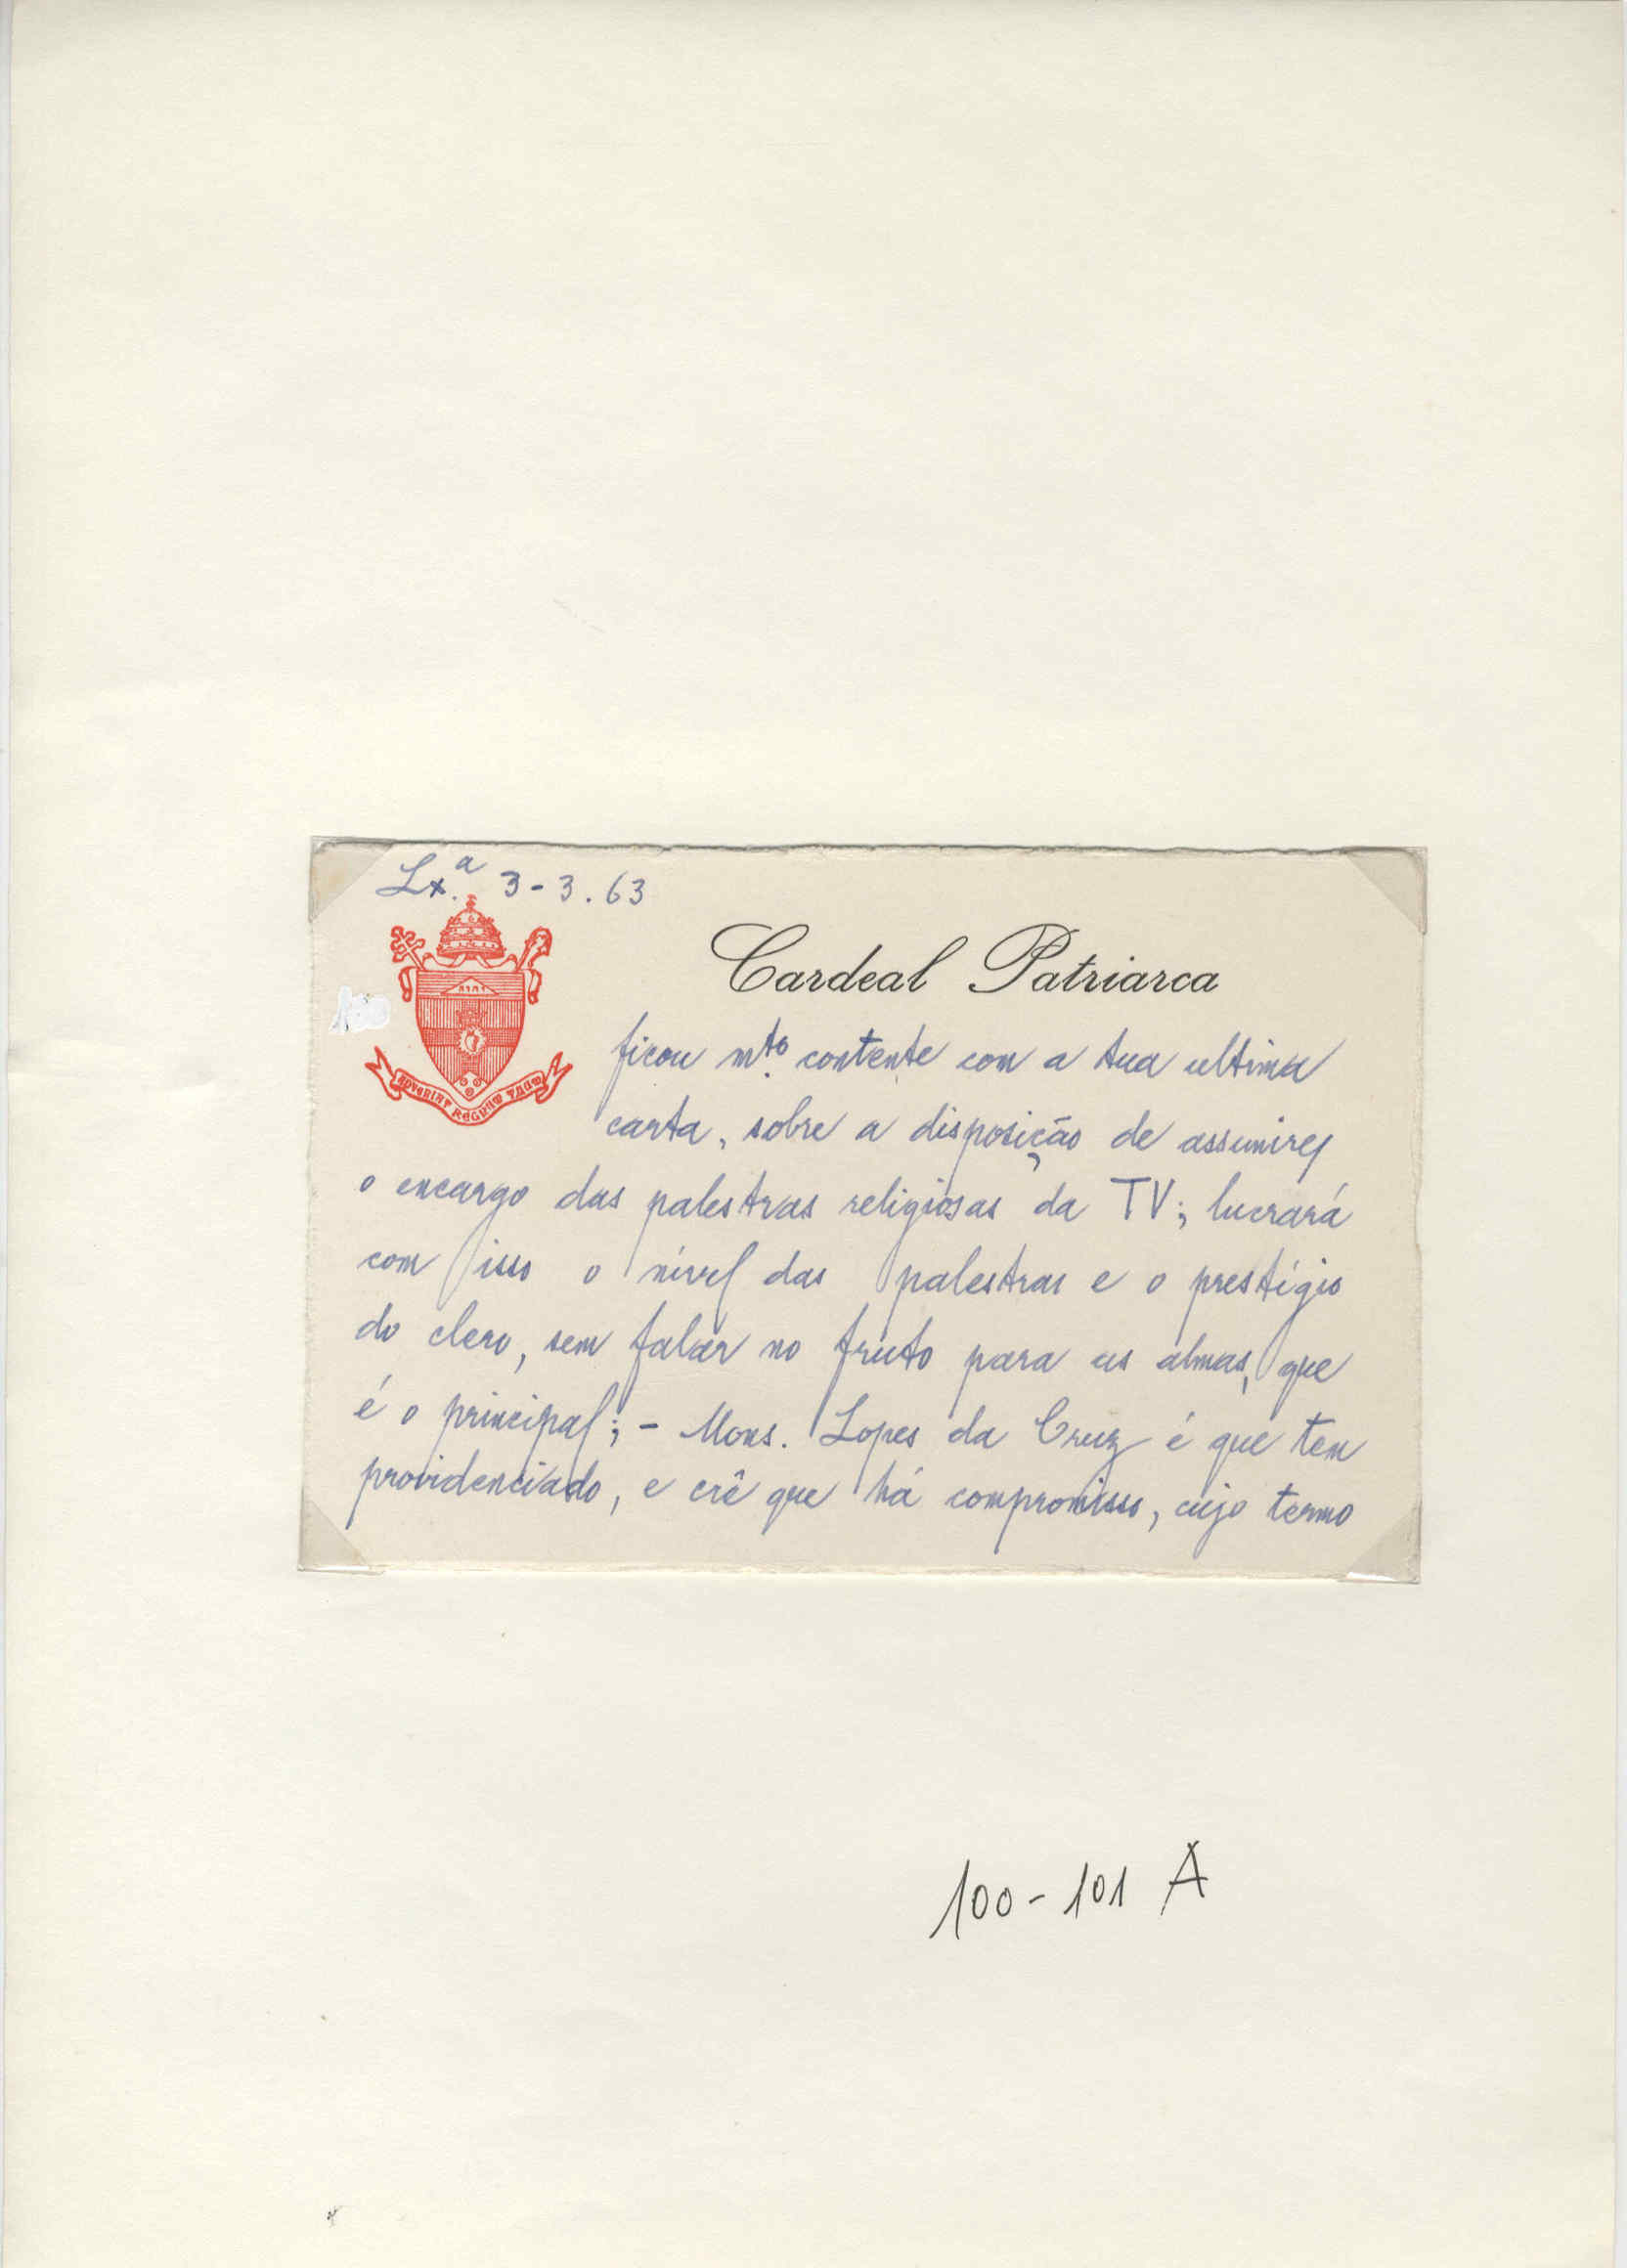 Lx.ª 3-3.63
Cardeal Patriarca
100
ficou mto. contente com a tua ultima
carta, sobre a disposição de assumires
o encargo das palestras religiosas da TV; lucrará
com isso o nível das palestras e o prestígio
do clero, sem falar no fruto para as almas, que
é o principal; - Mons. Lopes da Cruz é que tem
providenciado, e crê que há compromisso, cujo termo
ADVENIAT REGNUM TUUM
100-101 A